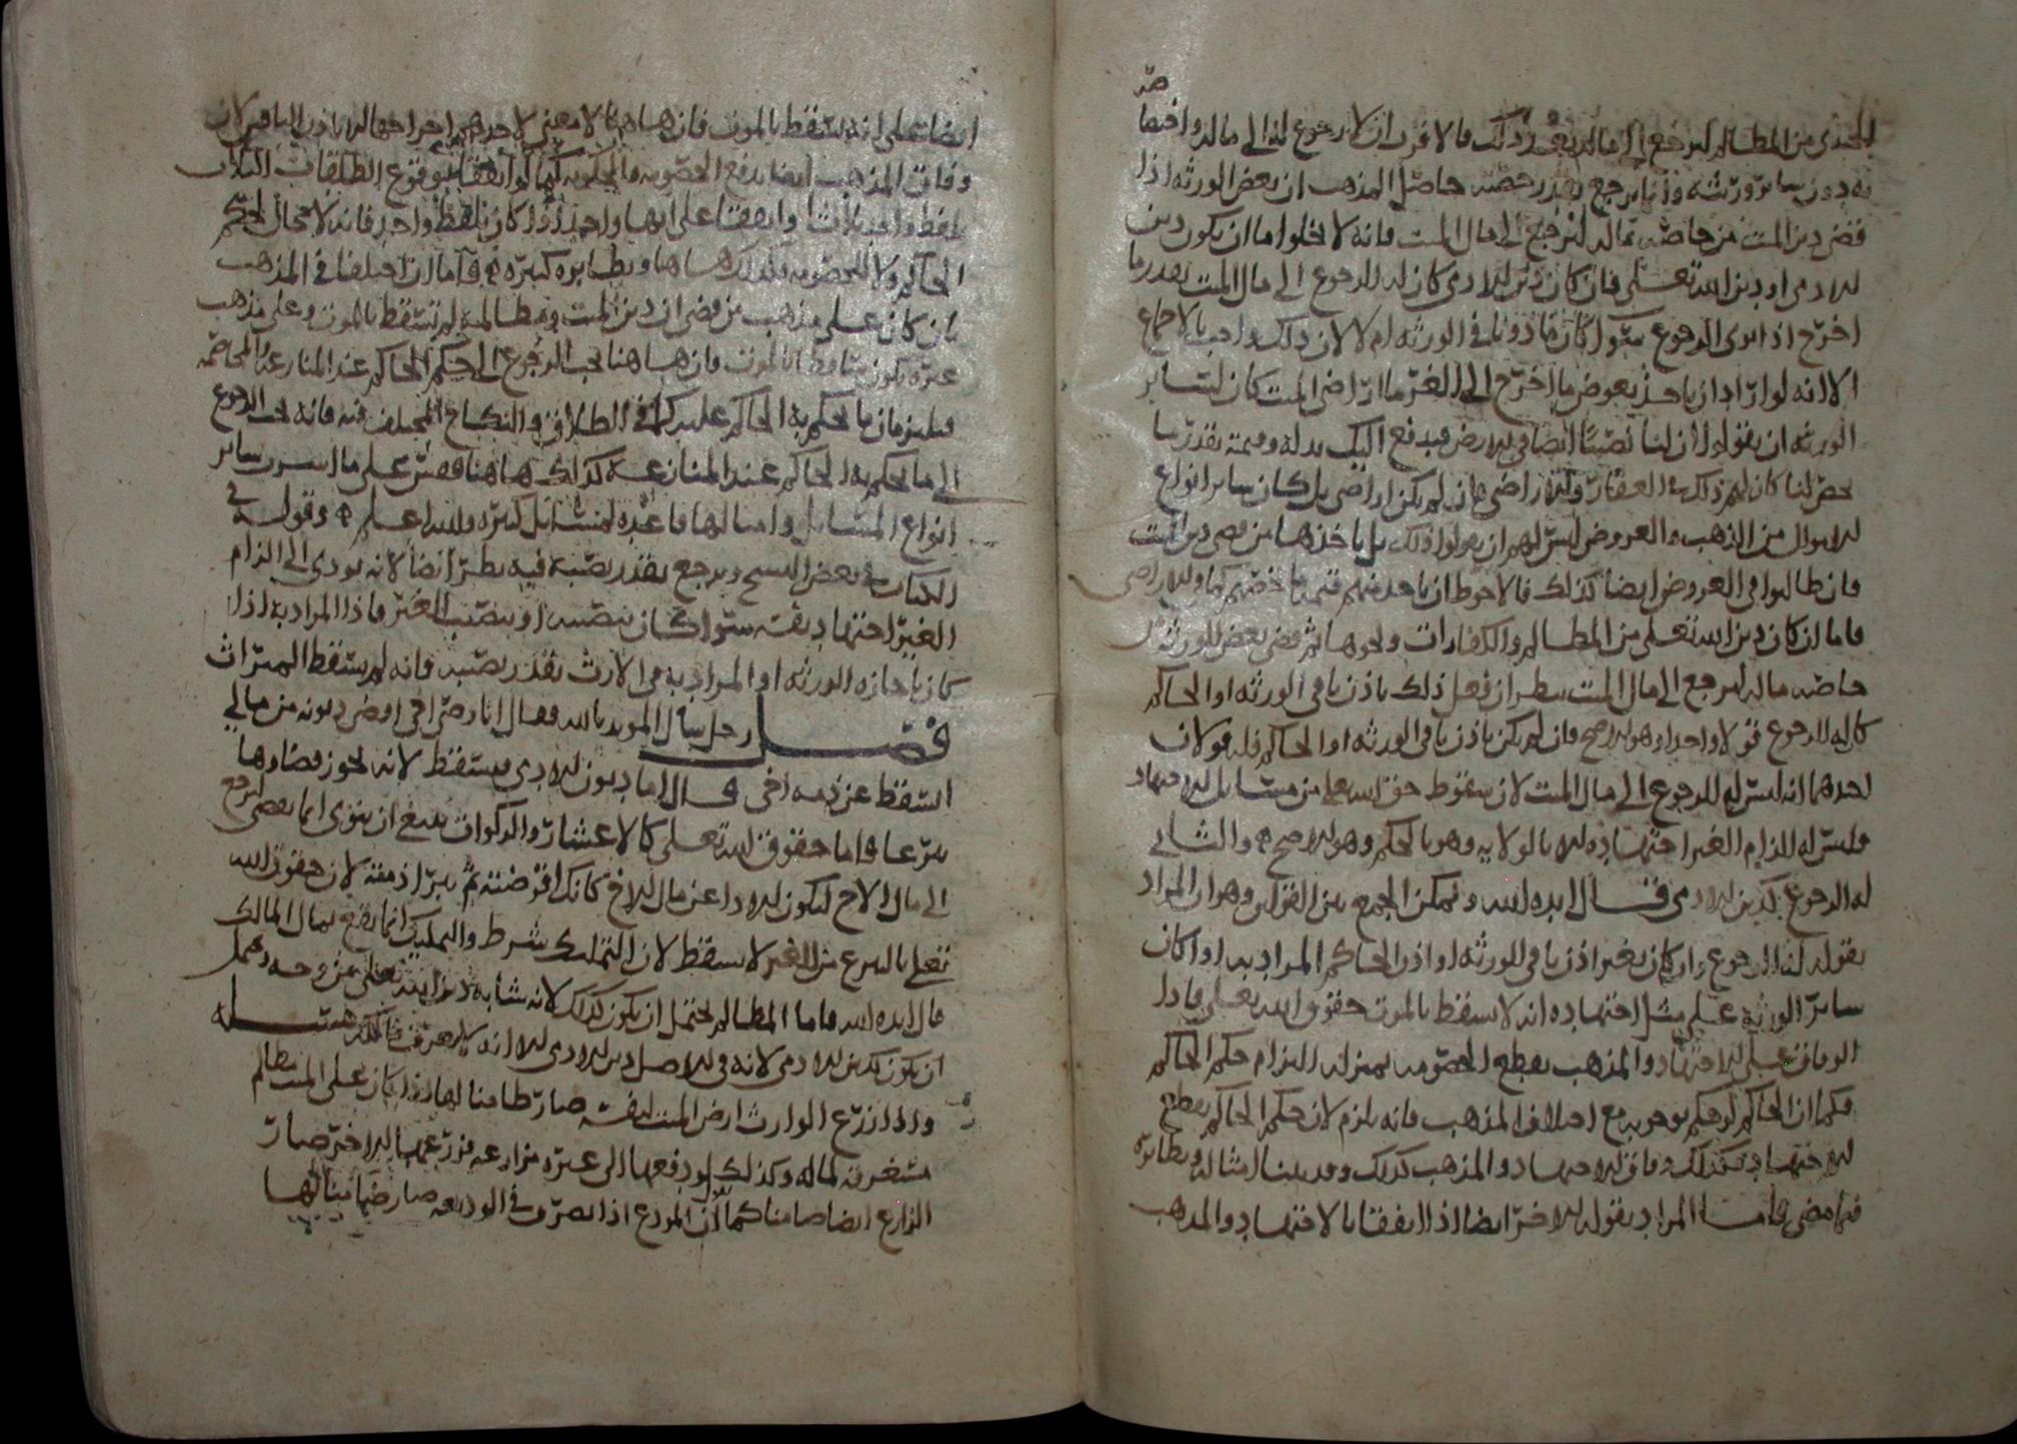 من المطالم ليرجع الى ماله بعد ذلك فالاقرب ان لا رجوع له الى ماله
به دون سائر ورثته وانما يرجع بقدر حصته حاصل المذهب ان بعض الورثة اذا
قضى دين الميت من خاصة ماله ليرجع الى مال الميت فانه لا يخلوا اما ان يكون دين
للادمى او دين الله تعلى فان كان دين للادمى كان له الرجوع الى مال الميت بقدر ما
اخرج اذا نوى الرجوع سوا كان ماذونا فى الورثه ام لا لان ذلك واجب بالاجماع
الا انه لو اراد ان ياخذ بعوض ما اخرج الى الغرما اراضى الميت كان لسائر
الورثه ان يقولوا ان لنا نصيبا ايضا فى الارض فيدفع اليك بدله وقيمته بقدر ما
حصر لنا كان لهم ذلك فى العقار والاراضى فان لم يكن اراضى بل كان سائر انواع
الاموال من الذهب والعروض ليس لهم ان يقولوا ذلك بل ياخذها من قضى دين الميت
فان طالبوا فى العروض ايضا كذلك فالاحوط ان ياخذ منهم قيمة ما خصهم كما فى الاراضى
فاما ان كان دين الله تعلى من المطالم والكفارات ونحوها ثم قضى بعض الورثه
خاصه ماله ليرجع الى مال الميت ينظر ان فعل ذلك باذن باقى الورثه او الحاكم
كان له الرجوع قولا واحدا وهو الاصح فان لم يكن باذن باقى الورثه او الحاكم فله قولان
احدهما انه ليس له الرجوع الى مال الميت لان سقوط حق الله تعلى من مسائل الاجتهاد
وليس له الزام الغير اجتهاده الا بالولايه وهو بالحكم وهو الاصح والثانى
له الرجوع كدين الادمى قال ايده الله ويمكن الجمع بين القولين وهو ان المراد
بقوله له الرجوع وان كان بغير اذن باقى الورثه او اذن الحاكم المراد به اذا كان
سائر الورثه على مثل اجتهاده انه لا يسقط بالموت حقوق الله تعلى فاذا
الوفاق على الاجتهاد والمذهب يقطع الخصومه بمنزلة التزام حكم الحاكم
فكما ان الحاكم لو حكم بوجوبه مع اختلاف المذهب فانه يلزم لان حكم الحاكم يقطع
الاجتهاد فكذلك وفاق الاجتهاد والمذهب كذلك وقد بينا امثاله ونظائره
فيما مضى فاما المراد بقوله الاخر ايضا اذا اتفقنا بالاجتهاد والمذهب
ايضا على انه يسقط بالموت فان هاهنا لا معنى لاحدهم اخراجها الا باذن الباقين لان
وفاق المذهب ايضا يدفع الخصومه والحكومه كما لو اتفقنا بوقوع الطلقات الثلاث
بلفظ واحد ثلاثا او اتفقنا على انها واحدة اذا كان بلفظ واحد فانه لا مجال لحكم
الحاكم ولا للخصومه فكذلك هاهنا ونظائره كثيره فاما ان اختلفا فى المذهب
بان كان على مذهب من قضى ان دين الميت ومظالمه لم تسقط بالموت وعلى مذهب
غيره يكون ساقطا بالموت فان هاهنا يجب الرجوع الى حكم الحاكم عند المنازعة والمخاصمه
فيلزمان ما يحكم به الحاكم عليه كما فى الطلاق والنكاح المختلف فيه فانه يجب الرجوع
الى ما يحكم به الحاكم عند المنازعة كذلك هاهنا فقس على ما سائر
انواع المسائل وامثالها فاعده لمسائل كثيره والله اعلم وقوله فى
الكتاب فى بعض النسخ ويرجع بقدر نصيبه فيه نظر ايضا لانه يودى الى الزام
الغير اجتهاد نفسه سوا كان بنصيبه او بنصيب الغير فاذا المراد به اذا
كان باجازه الورثه او المراد به فى الارث بقدر نصيبه فانه لم يسقط الميراث
فصل رجل سال المويد بالله فقال انا رضى اخى اقضى ديونه من مالى
ايسقط عن ذمه اخى قال اما ديون الادمى فيسقط لانه يجوز قضاوها
تبرعا فاما حقوق الله تعلى كالاعشار والزكوات ينبغى ان ينوى انما يعطى ليرجع
الى مال الاخ ليكون الادا عن مال الاخ كانك اقرضته ثم يبرا ذمته لان حقوق الله
تعلى بالتبرع من الغير لا يسقط لان التمليك شرط والتمليك انما يقع بمال المالك
قال ايده الله فاما المظالم يحتمل ان يكون كذلك لانه شابه دين الله تعلى من وجه ويحتمل
ان يكون كدين الادمى لانه فى الاصل دين الادمى الا انه لا يعرف مالكه مسئله
واذا زرع الوارث ارض الميت لنفسه صار ضامنا لها اذا كان على الميت مظالم
مستغرقه لماله وكذلك لو دفعها الى غيره مزارعه فزرعها الاخر صار
الزارع ايضا ضامنا كما ان المودع اذا تصرف فى الوديعه صار ضامنا لها